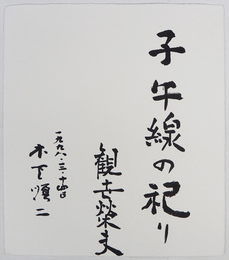 子午線の祀り
観世榮夫
一九九八・三・十四日
木下順二